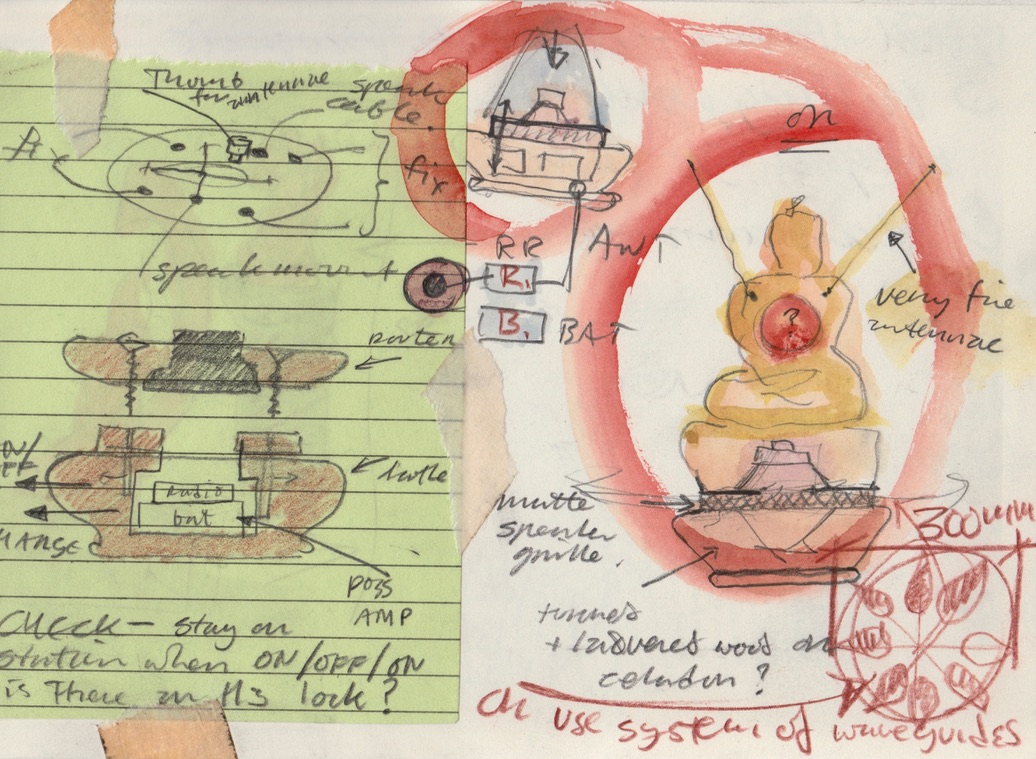 Thumb
for antennae
speak
cable.
fix
fix
speak mount
RR
R.
B.
ANT
BAT
on
very fine
antennae
ON/
OFF
radio
bat
CHARGE
poss
AMP
CHECK – stay on
station when ON/OFF/ON
is There an Hz lock?
matte
speaker
grille.
turned
+ ladvered wood on
celadon?
300mm
OR use system of waveguides